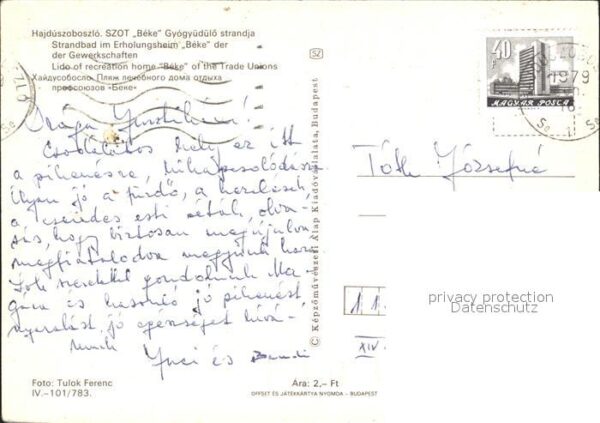 Hajdúszoboszló. SZOT „Béke” Gyógyüdülő strandja
Strandbad im Erholungsheim „Béke” der
der Gewerkschaften
Lido of recreation home "Béke" of the Trade Unions
Хайдусобосло. Пляж лечебного дома отдыха
профсоюзов «Беке»
SZ
40 f
MAGYAR POSTA
1979
Drága Jusztikám!
Csodálatos hely ez itt
a pihenésre, kikapcsolódásra
Ilyen jó a fürdő, a kezelések,
a csendes esti séták, olva-
sás, hogy biztosan megújulva
megfiatalodva megyünk haza
Sok szeretettel gondolunk Ma-
gára és hasonló jó pihenést,
nyaralást, jó egészséget kívá-
nunk
és
Tóth Józsefné
© Képzőművészeti Alap Kiadóvállalata, Budapest
1 1
XIV.
privacy protection
Datenschutz
Foto: Tulok Ferenc
IV.–101/783.
Ára: 2,– Ft
OFFSET ÉS JÁTÉKKÁRTYA NYOMDA – BUDAPEST